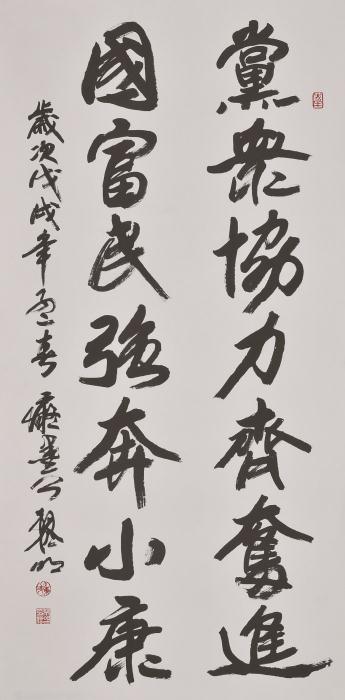 黨衆協力齊奮進
國富民強奔小康
歲次戊戌年孟春 癡墨